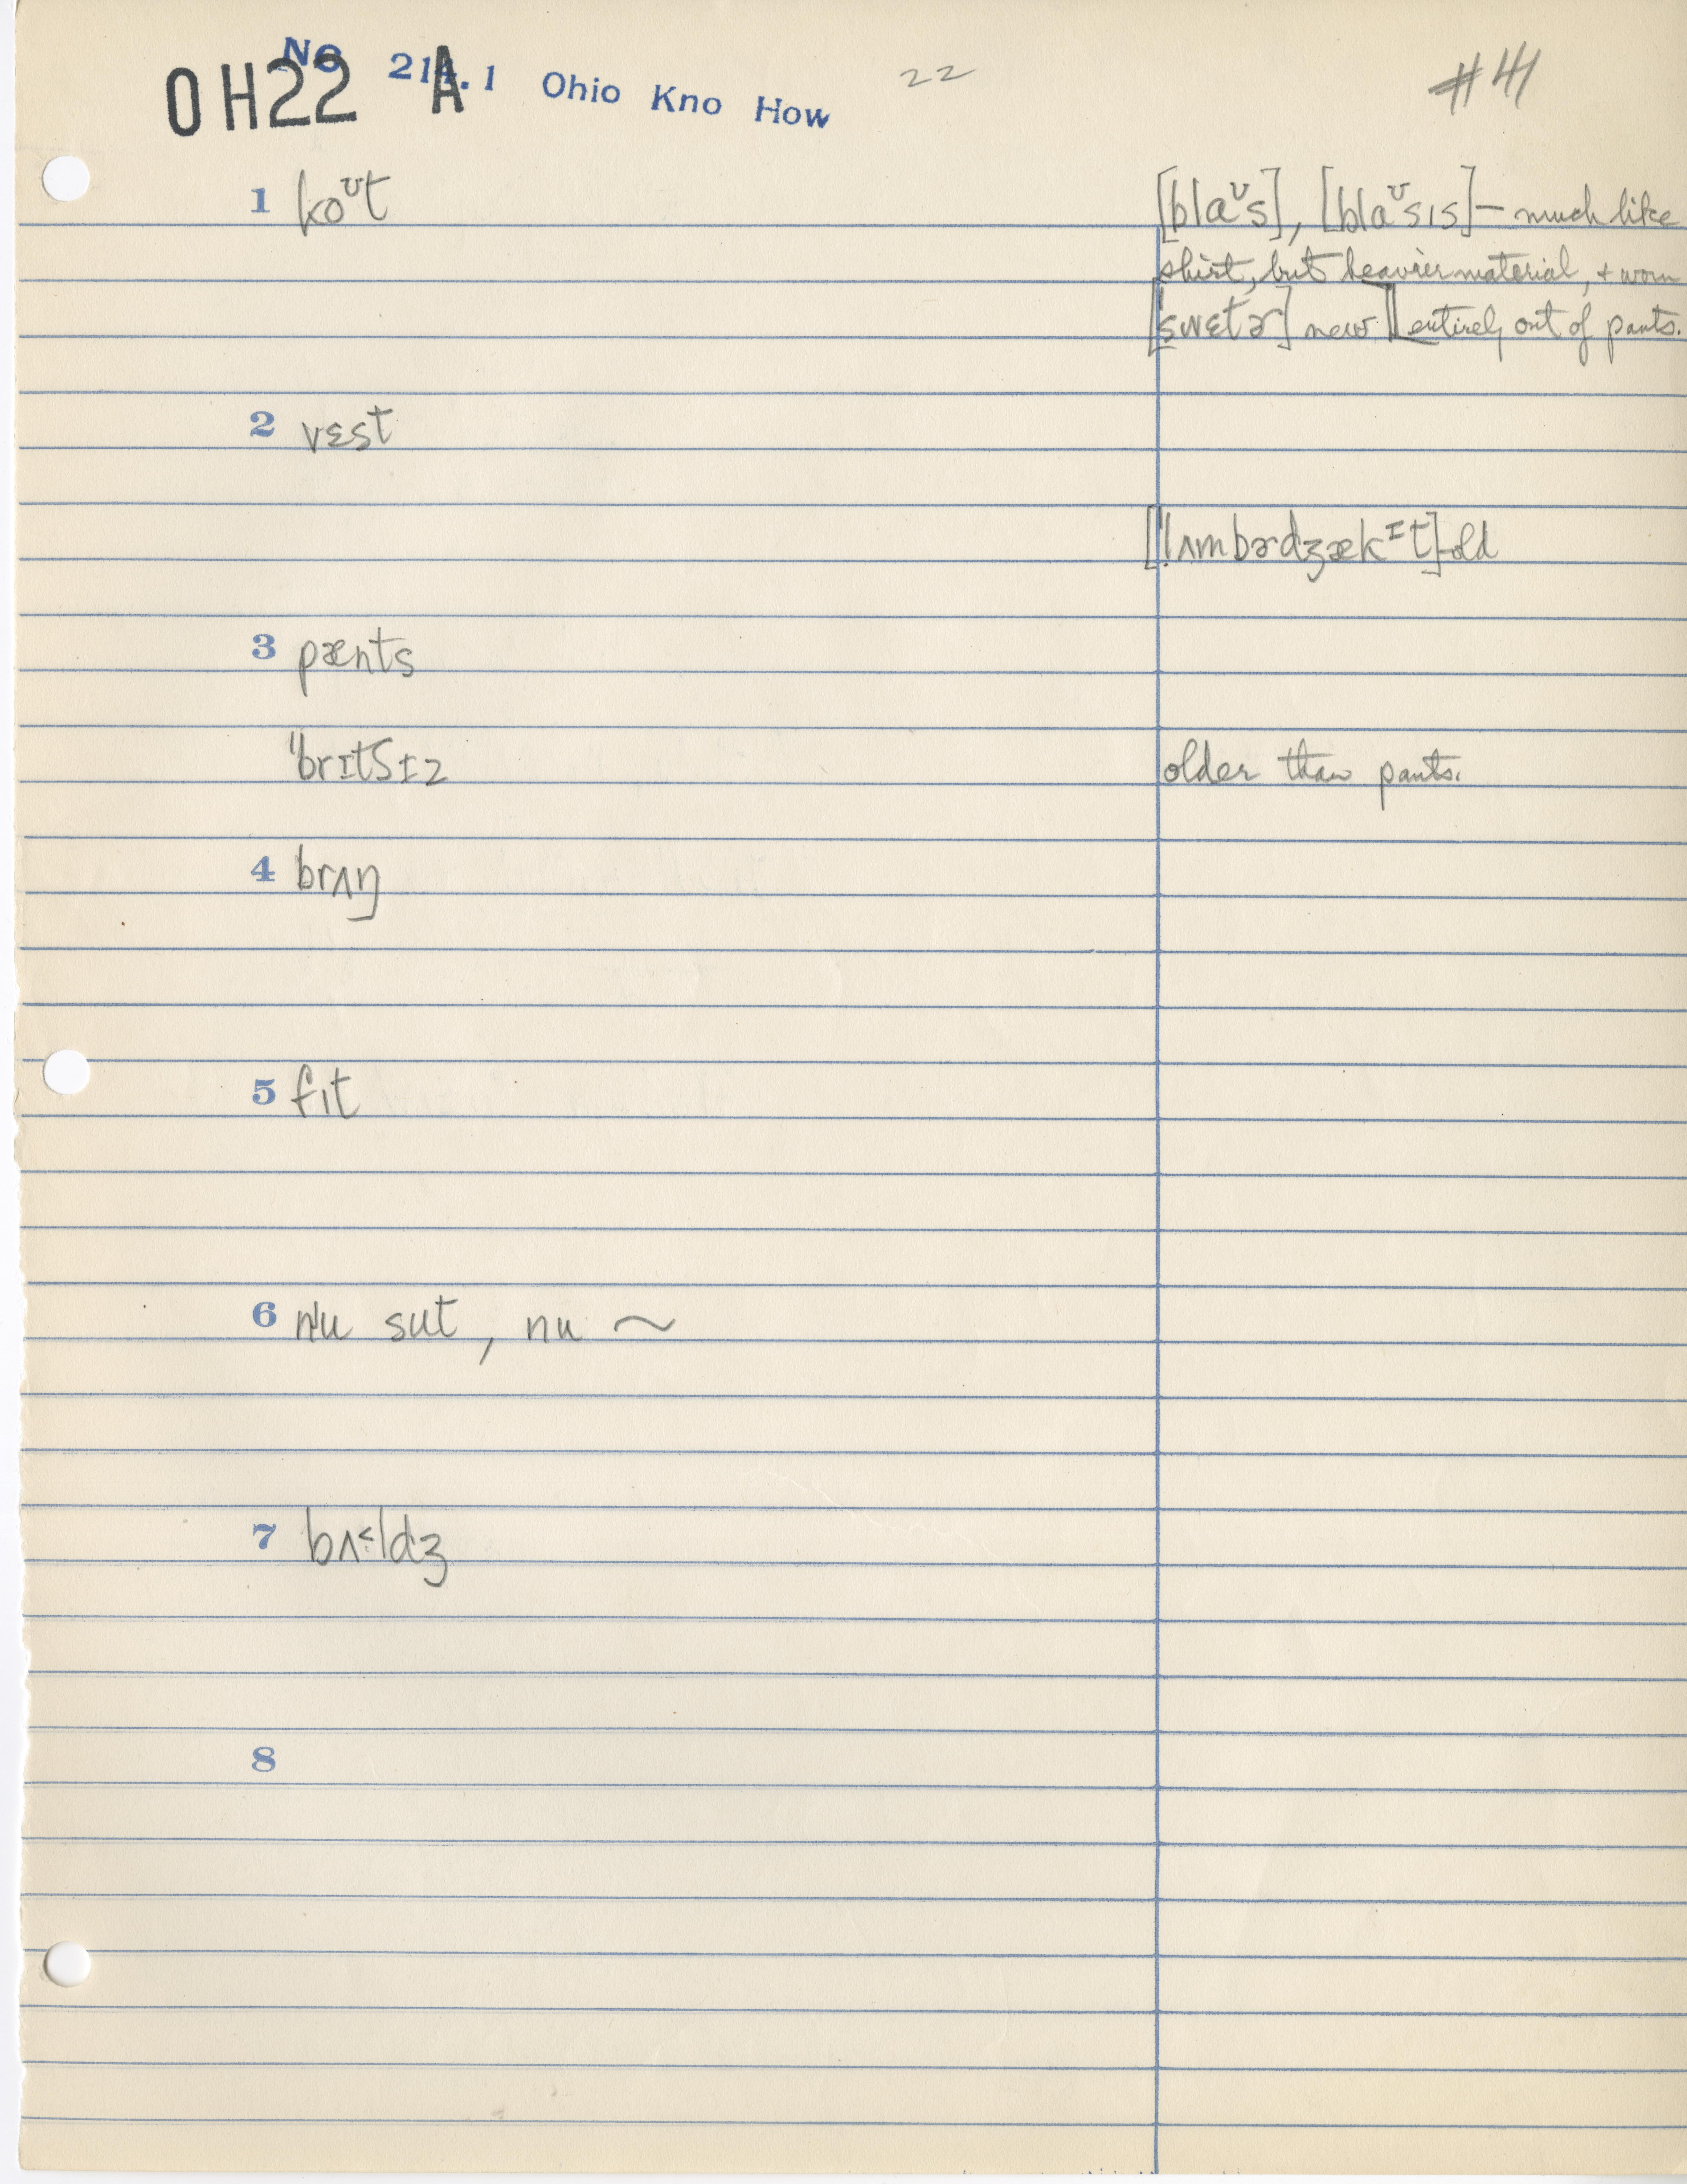 OH22 A
No 214.1 Ohio Kno How
22
#41
1 koᶷt
[blaᶷs], [blaᶷsɪs] – much like
shirt, but heavier material, + worn
[swɛtɚ] new] [entirely out of pants.
2 vɛst
['lʌmbɚdʒækᶦt] – old
3 pænts
"brɪtʃɪz
older than pants.
4 brʌŋ
5 fɪt
6 nʲu sut, nu ~
7 bʌ˂ldʒ
8